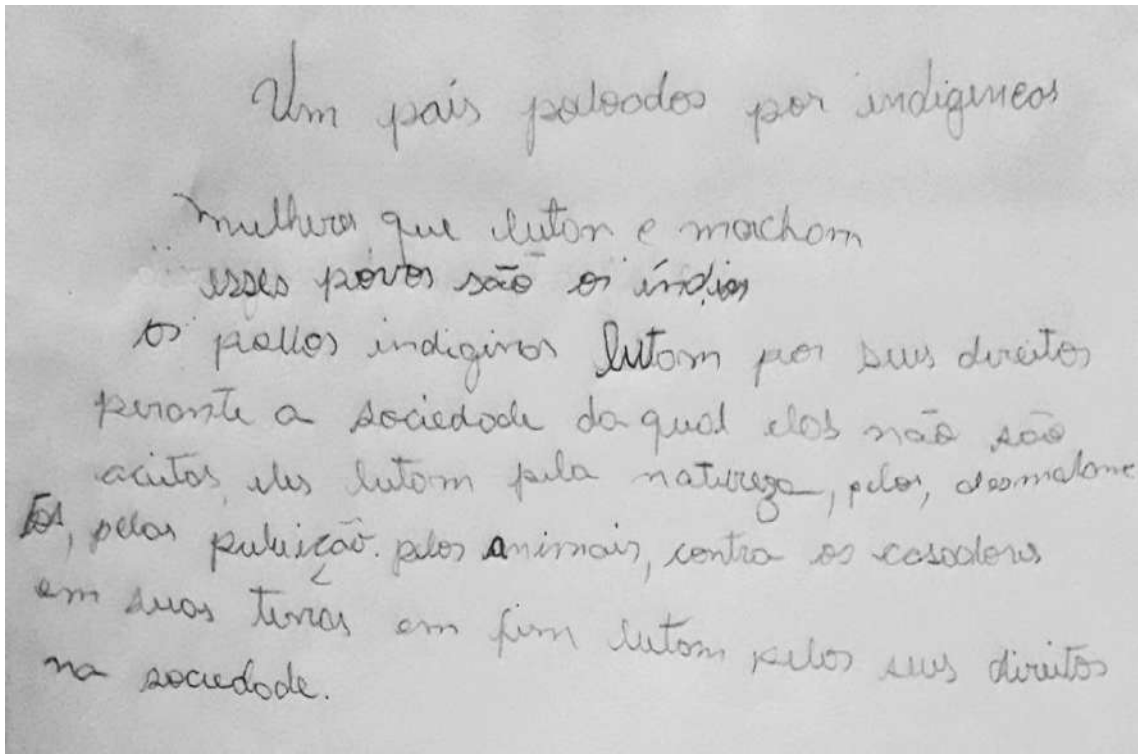 Um país poloados por indigineos
mulheres que lutan e marcham
esses povos são os índios
os pollos indiginos lutam por seus direitos
perante a sociedade da qual elas não são
aceitos, eles lutam pela natureza, pelos, desmatame
tos, pelas puluição. pelos animais, contra os casadores
em suas terras em fim lutam pelos seus direitos
na sociedade.